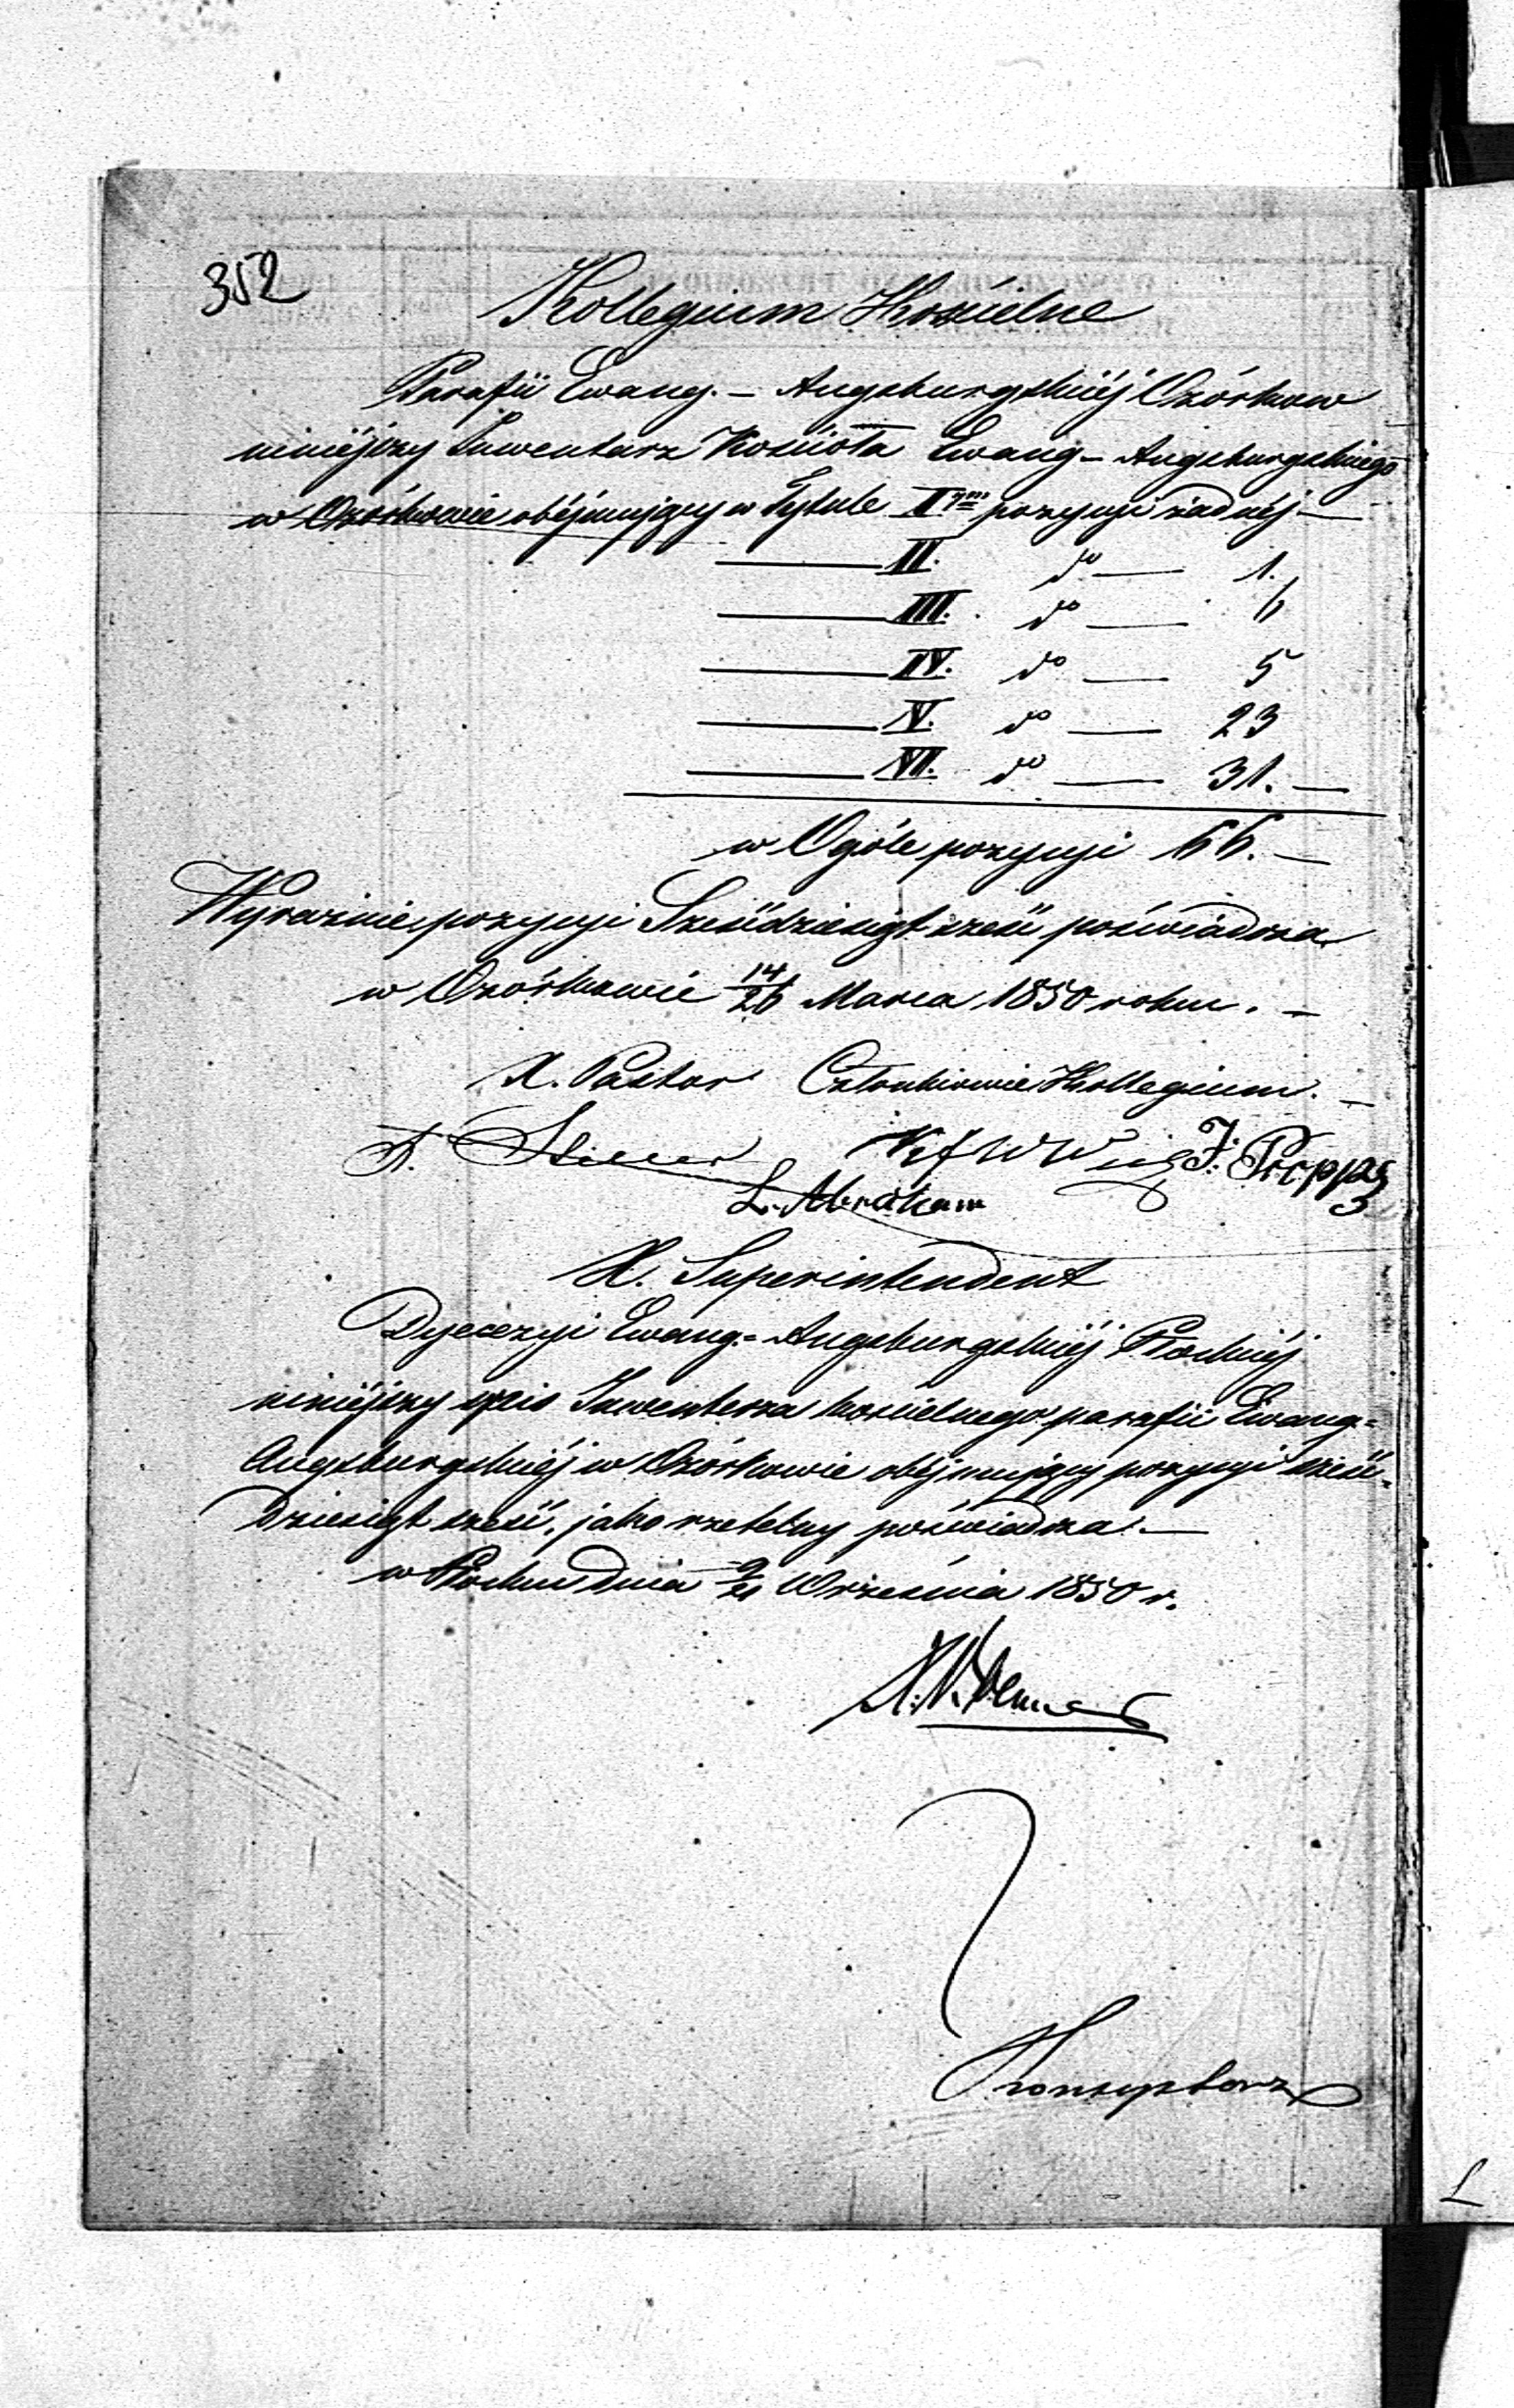 352
Kollegium Kościelne
Parafii Ewang. – Augsburgskiéj Ozórkow
niniéjszy Inwentarz Kościoła Ewang – Augsburgskiego
w Ozórkowie obéjmujący w Tytule I ym pozycyi żadnéj —
— II. do — 1.
— III. do — 6
— IV. do — 5
— V. do — 23
— VI. do — 31. —
w Ogóle pozycyi 66. —
Wyraźnie pozycyi Sześćdziesiąt sześć poświadcza
w Ozórkowie 14/26 Marca 1850 roku. —
X. Pastor Członkowie Kollegium. —
J. Propp
L. Abraham
X. Superintendent
Dyecezyi Ewang.= Augsburgskiéj Płockiéj
niniéjszy spis Inwentarza kościelnego parafii Ewang=
Augsburgskiéj w Ozórkowie obéjmujący pozycyi sześć=
dziesiąt sześć, jako rzetelny poświadcza. —
w Płocku dnia 9/21 Września 1850 r.